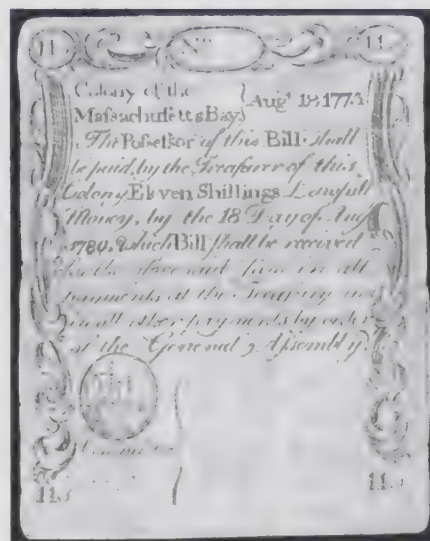 11
No
11
Colony of the Augt 18. 1775
Massachusetts Bay
The Possessor of this Bill shall
be paid by the Treasurer of this
Colony Eleven Shillings Lawfull
Money, by the 18 Day of Aug
1780. Which Bill shall be received
for the aforesaid sum in all
payments at the Treasury and
in all other payments by order
of the General Assembly
11s
11s